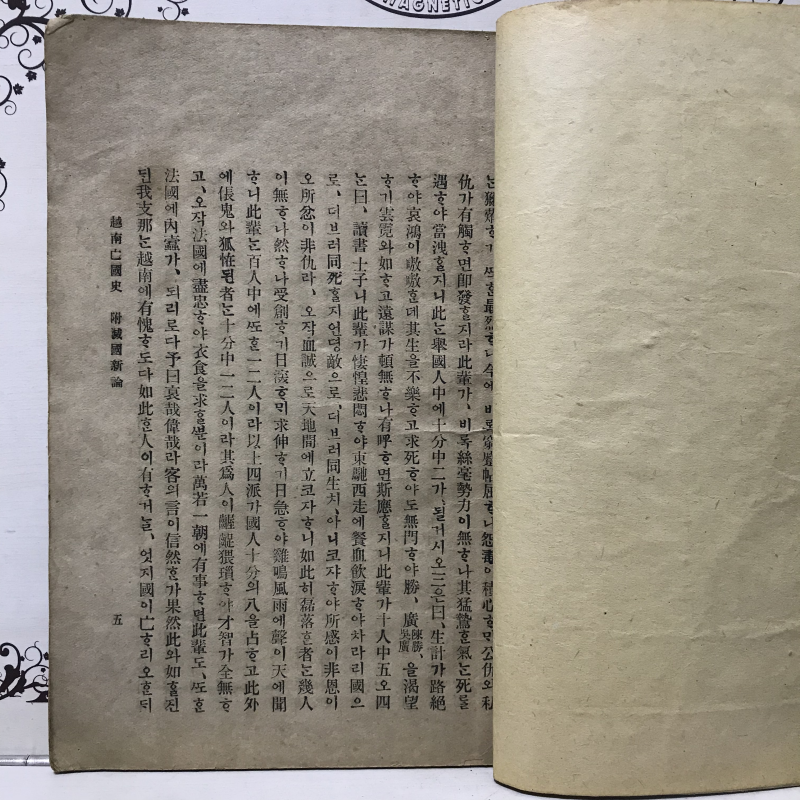 MAGNETIC
最烈ᄒᆞ니今에비록 ᄒᆞ나怨毒이積心ᄒᆞᄆᆡ公仇와私
仇가有觸ᄒᆞ면卽發ᄒᆞᆯ지라此輩가、비록絲毫勢力이無ᄒᆞ나其猛鷙ᄒᆞᆫ氣ᄂᆞᆫ死를
遇ᄒᆞ야當洩ᄒᆞᆯ지니此ᄂᆞᆫ擧國人中에十分中二가、될거시오三은曰、生計가路絕
ᄒᆞ야哀鴻이嗷嗷ᄒᆞᆫ데其生을不樂ᄒᆞ고求死ᄒᆞ야도無門ᄒᆞ야勝、廣陳勝、吳廣을渴望
ᄒᆞ기雲霓와如ᄒᆞ고遠謀가頓無ᄒᆞ나有呼ᄒᆞ면斯應ᄒᆞᆯ지니此輩가十人中五오四
ᄂᆞᆫ曰、讀書士子니此輩가悽惶悲悶ᄒᆞ야東馳西走에餐血飮淚ᄒᆞ야차라리國으
로、더브러同死ᄒᆞᆯ지언뎡敵으로、더브러同生치、아니코쟈ᄒᆞ야所感이非恩이
오所忿이非仇라、오작血誠으로天地間에立코자ᄒᆞ니如此히磊落ᄒᆞᆫ者ᄂᆞᆫ幾人
이無ᄒᆞ나然ᄒᆞ나受創ᄒᆞ기日深ᄒᆞᄆᆡ求伸ᄒᆞ기日急ᄒᆞ야雞鳴風雨에聲이天에聞
ᄒᆞ니此輩ᄂᆞᆫ百人中에ᄯᅩᄒᆞᆫ一二人이라以上四派가國人十分의八을占ᄒᆞ고此外
에倀鬼와狐恠된者ᄂᆞᆫ十分中一二人이라其爲人이齷齪猥瑣ᄒᆞ야才智가全無ᄒᆞ
고、오작法國에盡忠ᄒᆞ야衣食을求ᄒᆞᆯᄲᅮᆫ이라萬若一朝에有事ᄒᆞ면此輩도、ᄯᅩᄒᆞᆫ
法國에內蠹가、되리로다予曰哀哉偉哉라客의言이信然ᄒᆞᆫ가果然此와如ᄒᆞᆯ진
된我支那ᄂᆞᆫ越南에有愧ᄒᆞ도다如此ᄒᆞᆫ人이有ᄒᆞ거ᄂᆞᆯ、엇지國이亡ᄒᆞ리오ᄒᆞᆫᄃᆡ
越南亡國史 附滅國新論 五